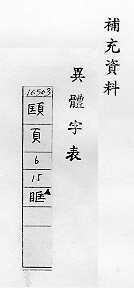 補充資料
異體字表
16503
頁
6
15
眶▲